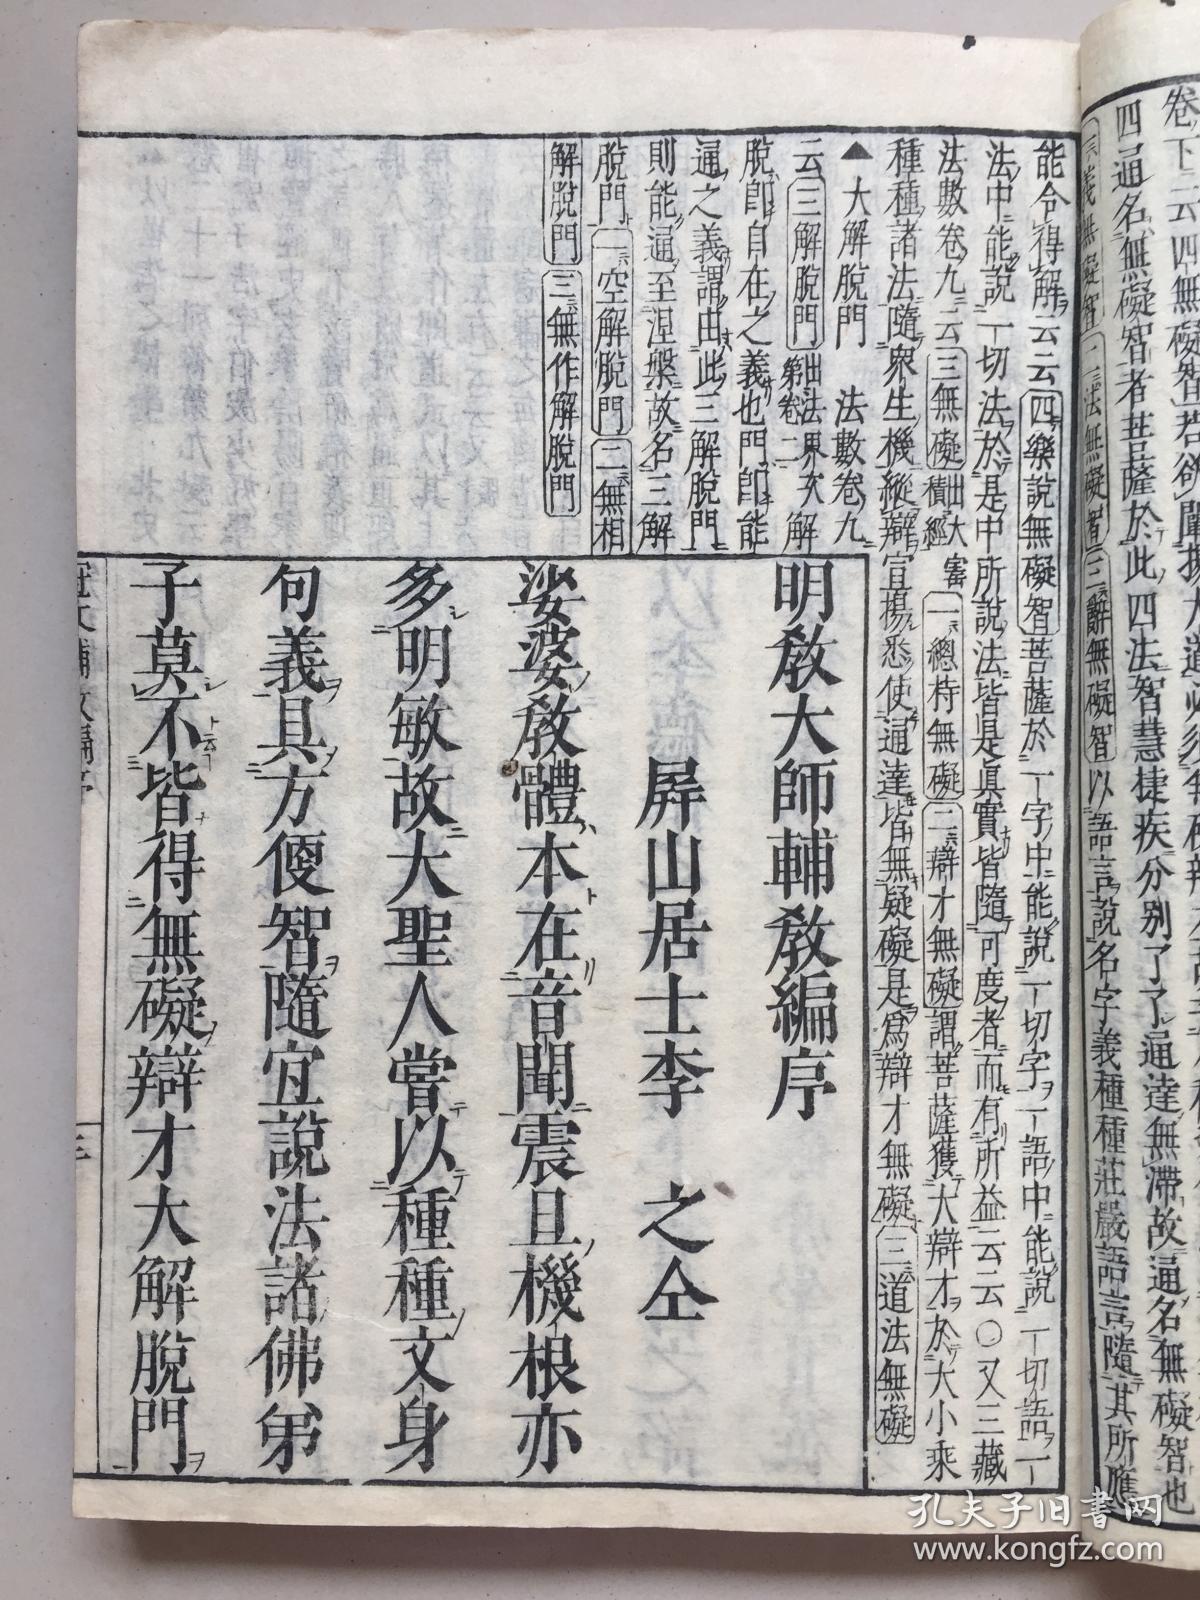 卷下云四無礙智若欲
四通名無礙智者菩薩於此四法智慧捷疾分別了了通達無滯故通名無礙智也
義無礙智二法無礙智三辭無礙智以語言說名字義種種莊嚴語言隨其所應
能令得解云云四樂說無礙智菩薩於一字中能說一切字一語中能說一切語一
法中能說一切法於是中所說法皆是眞實皆隨可度者而有所益云云〇又三藏
法數卷九云三無礙出大寶積經一總持無礙二辯才無礙謂菩薩獲大辯才於大小乘
種種諸法隨衆生機縱辯宣揚悉使通達皆無疑礙是爲辯才無礙三道法無礙
▲大解脫門 法數卷九
云三解脫門出法界次第卷二解
脫卽自在之義也門卽能
通之義謂由此三解脫門
則能通至涅槃故名三解
脫門一空解脫門二無相
解脫門三無作解脫門
明敎大師輔敎編序
屛山居士李 之仝
娑婆敎體本在音聞震旦機根亦
多明敏故大聖人嘗以種種文身
句義具方便智隨宜說法諸佛弟
子莫不皆得無礙辯才大解脫門
三
孔夫子旧书网
www.kongfz.com